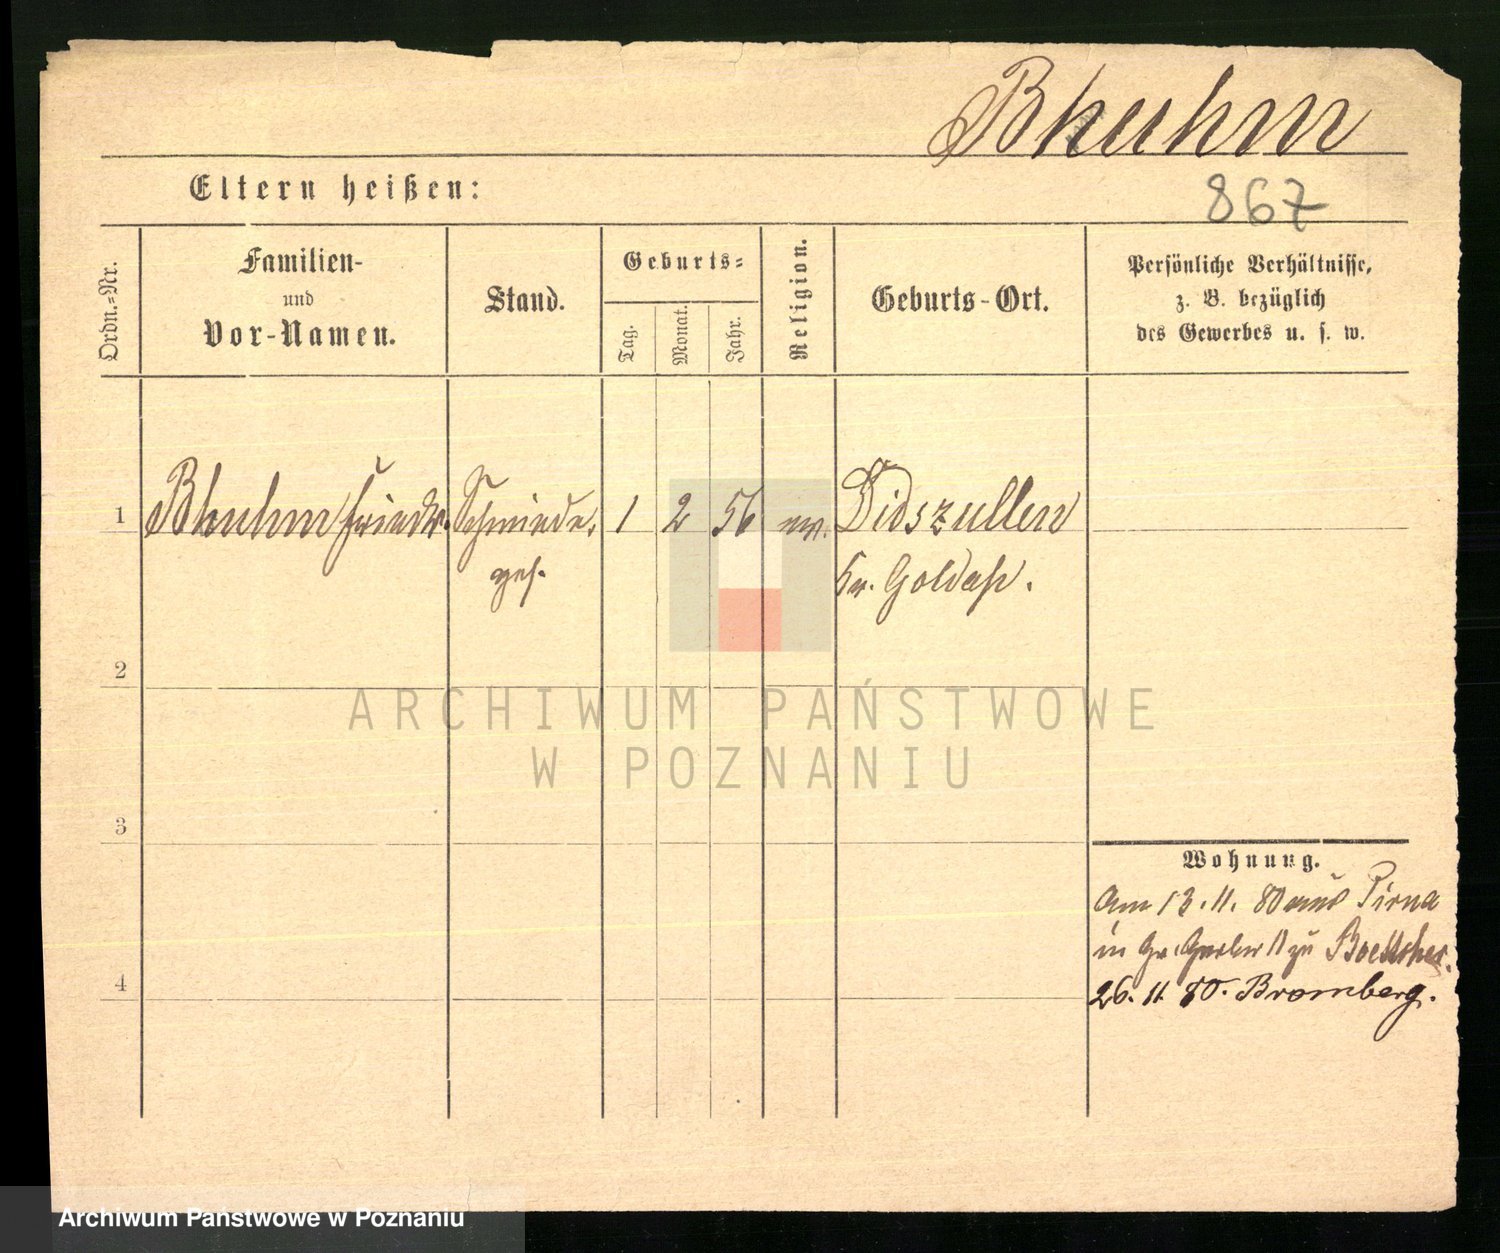 Bhuhm
867
Eltern heißen:
Ordn.-Nr.
Familien-
und
Vor-Namen.
Stand.
Geburts-
Tag.
Monat.
Jahr.
Religion.
Geburts-Ort.
Persönliche Verhältnisse,
z. B. bezüglich
des Gewerbes u. s. w.
1 Bhuhm Friedr. Schmiede- 1 2 56 ev. Didszullen
ges. Kr. Goldap.
2
ARCHIWUM PAŃSTWOWE
W POZNANIU
3
Wohnung.
Am 13.11.80 aus Pirna
in Gr. Gerber 11 zu Boettcher.
4
26.11.80. Bromberg.
Archiwum Państwowe w Poznaniu